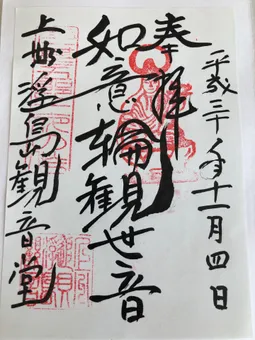 平成三十年十一月四日
奉拝
如意輪観世音
上州浮島山観音堂